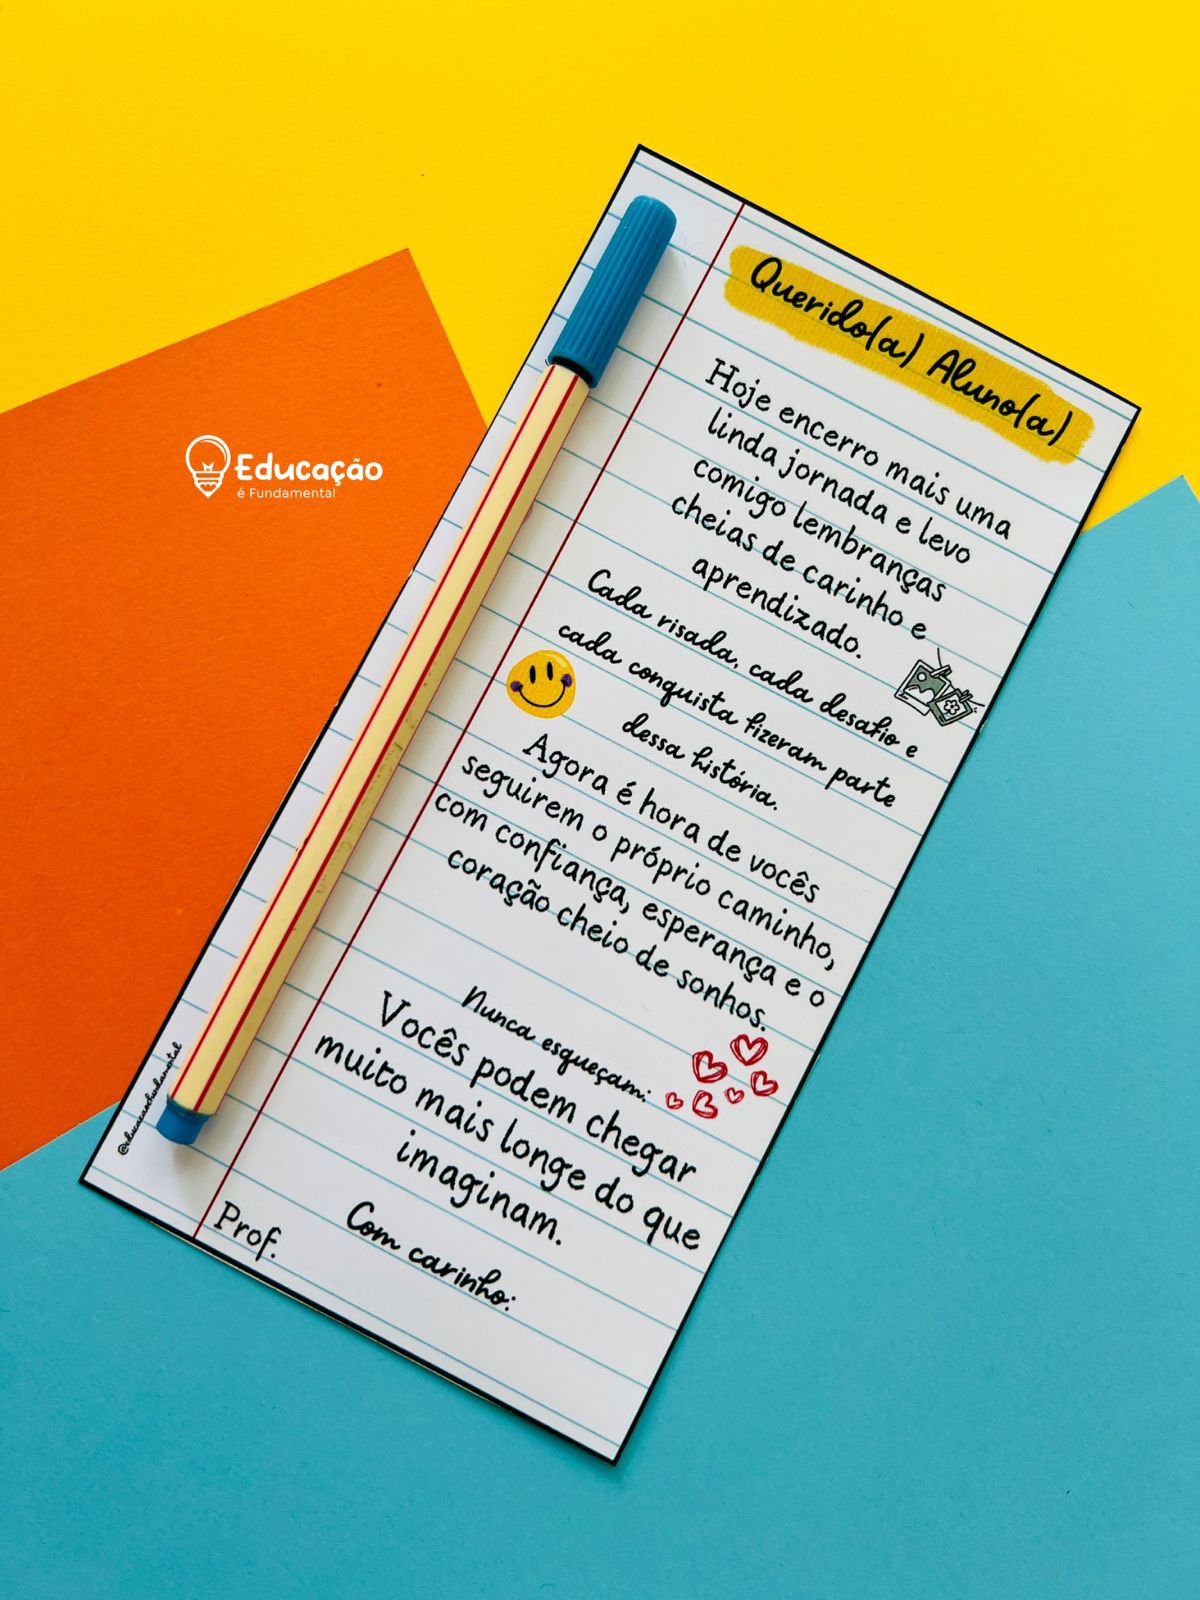 Educação
é Fundamental
Querido(a) Aluno(a)
Hoje encerro mais uma
linda jornada e levo
comigo lembranças
cheias de carinho e
aprendizado.
Cada risada, cada desafio e
cada conquista fizeram parte
dessa história.
Agora é hora de vocês
seguirem o próprio caminho,
com confiança, esperança e o
coração cheio de sonhos.
Nunca esqueçam:
Vocês podem chegar
muito mais longe do que
imaginam.
Com carinho:
Prof.
@educacaofundamental